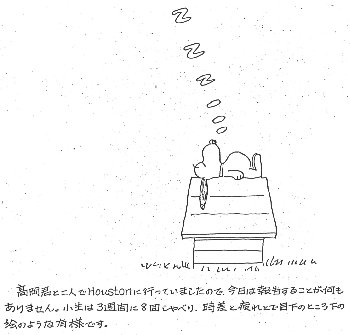 Z
Z
Z
高岡君と二人でHoustonに行っていましたので、今日は報告することが何も
ありません。小生は3週間に8回しゃべり、時差と疲れとで目下のところ下の
絵のような有様です。